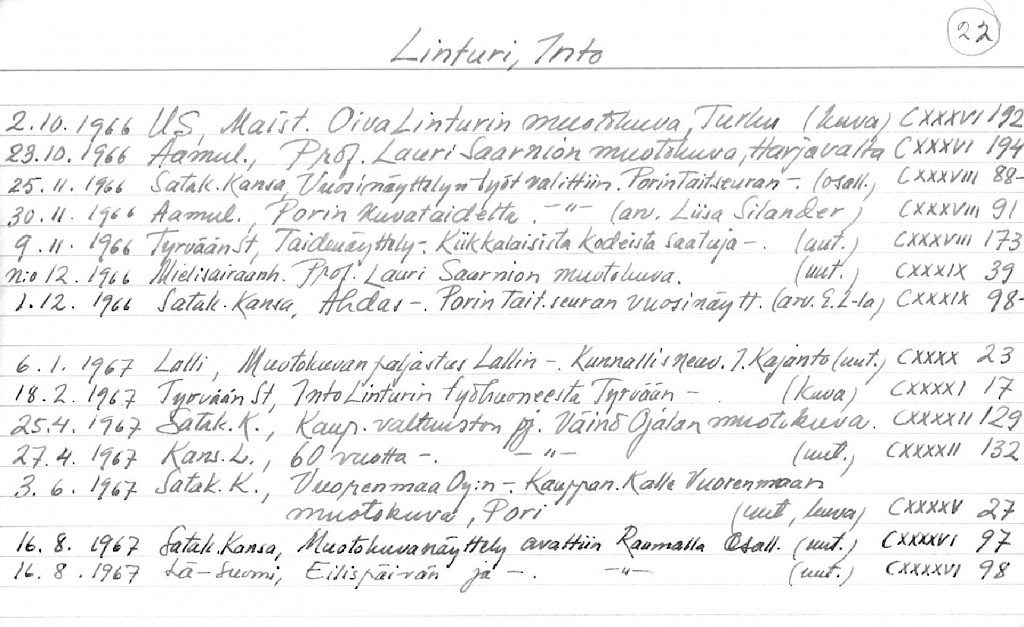 22
Linturi, Into
2.10.1966 US, Maist. Oiva Linturin muotokuva, Turku (kuva) CXXXVI 192
23.10.1966 Aamul., Prof. Lauri Saarnion muotokuva, Harjavalta CXXXVI 194
25.11.1966 Satak. Kansa, Vuosinäyttelyn työt valittiin. Porin Tait.seuran -. (osall.) CXXXVIII 88-
30.11.1966 Aamul., Porin kuvataidetta. -"- (arv. Liisa Silander) CXXXVIII 91
9.11.1966 Tyrvään St, Taidenäyttely -. Kiikkalaisista kodeista saatuja -. (uut.) CXXXVIII 173
n:o 12.1966 Mielisairaanh. Prof. Lauri Saarnion muotokuva. (uut.) CXXXIX 39
1.12.1966 Satak. Kansa, Ahdas -. Porin Tait.seuran vuosinäytt. (arv. E.L-la) CXXXIX 98-
6.1.1967 Lalli, Muotokuvan paljastus Lallin -. Kunnallisneuv. J. Kajanto (uut.) CXXXX 23
18.2.1967 Tyrvään St, Into Linturin työhuoneesta Tyrvään -. (kuva) CXXXXI 17
25.4.1967 Satak. K., Kaup. valtuuston pj. Väinö Ojalan muotokuva. CXXXXII 129
27.4.1967 Kans. L., 60 vuotta -. -"- (uut.) CXXXXII 132
3.6.1967 Satak. K., Vuorenmaa Oy:n -. Kauppan. Kalle Vuorenmaan
muotokuva, Pori (uut, kuva) CXXXXV 27
16.8.1967 Satak. Kansa, Muotokuvanäyttely avattiin Raumalla Osall. (uut.) CXXXXVI 97
16.8.1967 Lä-Suomi, Eilispäivän ja -. -"- (uut.) CXXXXVI 98